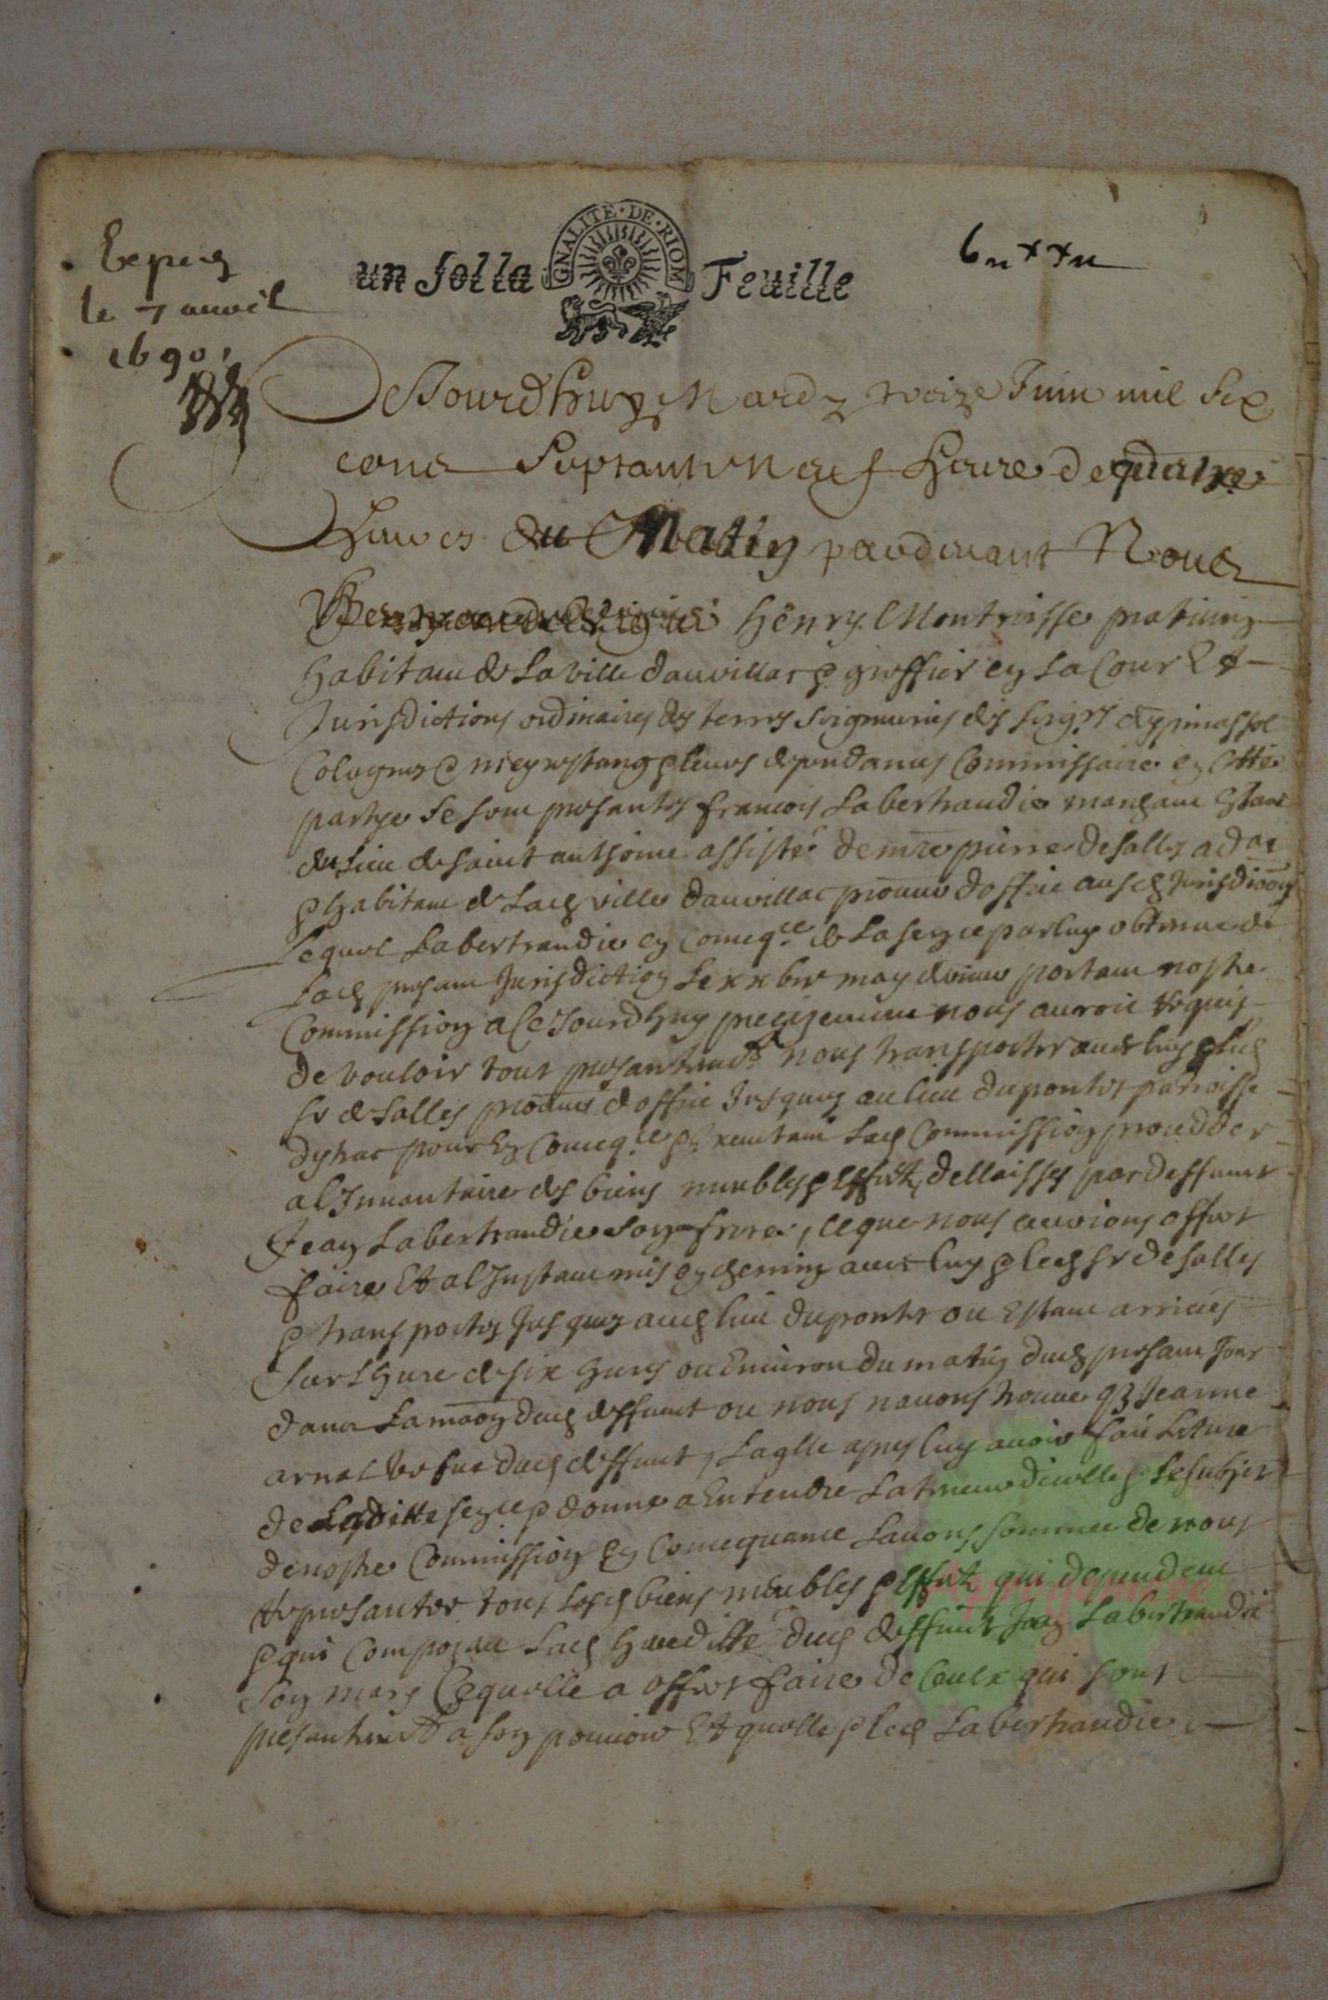 Expedᵉ
le 7 auvril
1690
un Solla Feuille
GNALITE·DE·RIOM
Ce Jourdhuy Mardy treize Juin mil six
cens septante neuf heure de quatre
heures du Matin pardevant Nous
Henry Montrisse praticien
habitant de la ville dauvillac & greffier en la Cour Et
Jurisdictions ordinaires des terres seigneuries des seigrs despinassol
Cologne & meyrestang & leurs despendances Commissaire en cette
partye se sont presantes francois Labertrandie marchant estant
du lieu de saint anthoine assisté de mre pierre desalles adat
& habitant de lad ville dauvillac proanur doffice ausd Jurisdicons
Lequel Labertrandie en conseqce de la par luy obtenue de
lad presant Jurisdiction le may dernier portant nostre
Commission a Ce Jourdhuy nous auroit requis
de vouloir tout presantemt nous transporter avec luy & led
sr desalles proanur doffice Jusques au lieu du pontet parroisse
dytrac pour En conseqce & exeutant lad Commission proceder
al Inuantaire des biens meubles & Effects dellaisses par deffunct
Jean Labertrandie son frere, ce que nous aurions offert
faire Et al Instant mis en chemin avec luy & led sr desalles
& transportes Jusques aud lieu du pontet ou Estant arrives
sur lhure de six hures ou Environ du matin dud presant Jour
dans la maon dud deffunct ou nous navons trouve q Jeanne
arnal vefue dud deffunt, laqlle apres luy avoir fait leture
de Laditte & donne a Entendre la teneur dicelle & le subjet
de nostre Commission En Consequance Lavons sommee de nous
represanter tous lesd biens meubles & Effects qui dependent
& qui Composent lad hereditte dud deffunct Jean Labertrandie
son mary Ce quelle a offert faire de Ceulx qui sont
presantemt a son pouvoir Et quelle & led Labertrandie